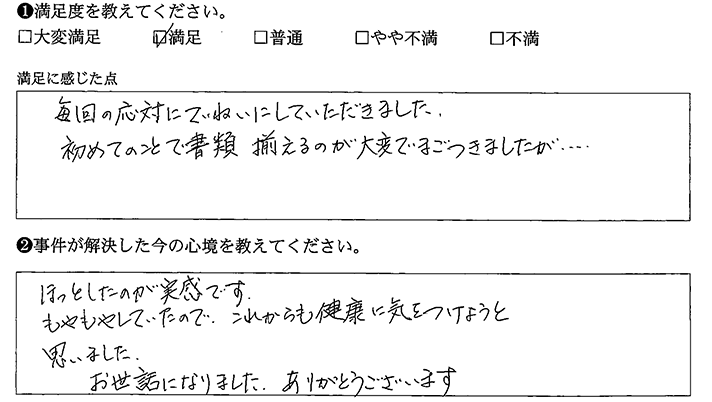 ❶満足度を教えてください。
□大変満足 ☑満足 □普通 □やや不満 □不満
満足に感じた点
毎回の応対にていねいにしていただきました.
初めてのことで書類 揃えるのが大変でまごつきましたが.....
❷事件が解決した今の心境を教えてください。
ほっとしたのが実感です.
もやもやしていたので. これからも健康に気をつけようと
思いました.
お世話になりました. ありがとうございます